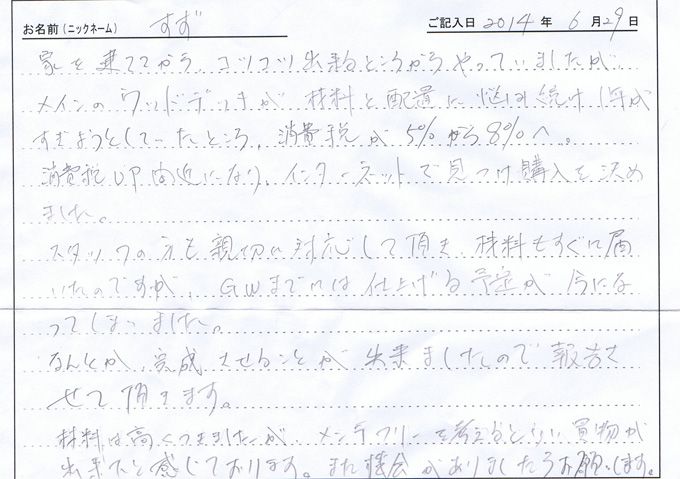 お名前(ニックネーム) すず ご記入日 2014 年 6 月 29 日
家を建ててから、コツコツ出来るところからやっていましたが、
メインのウッドデッキが材料と配置に悩み続け1年が
すぎようとしていたところ、消費税が5%から8%へ。
消費税UP間近になり、インターネットで見つけ購入を決め
ました。
スタッフの方も親切に対応して頂き 材料もすぐに届
いたのですが、GWまでには仕上げる予定が今にな
ってしまいました。
なんとか、完成させることが出来ましたので報告さ
せて頂きます。
材料は高くつきましたが、メンテフリーを考えるといい買物が
出来たと感じております。また機会がありましたらお願いします。